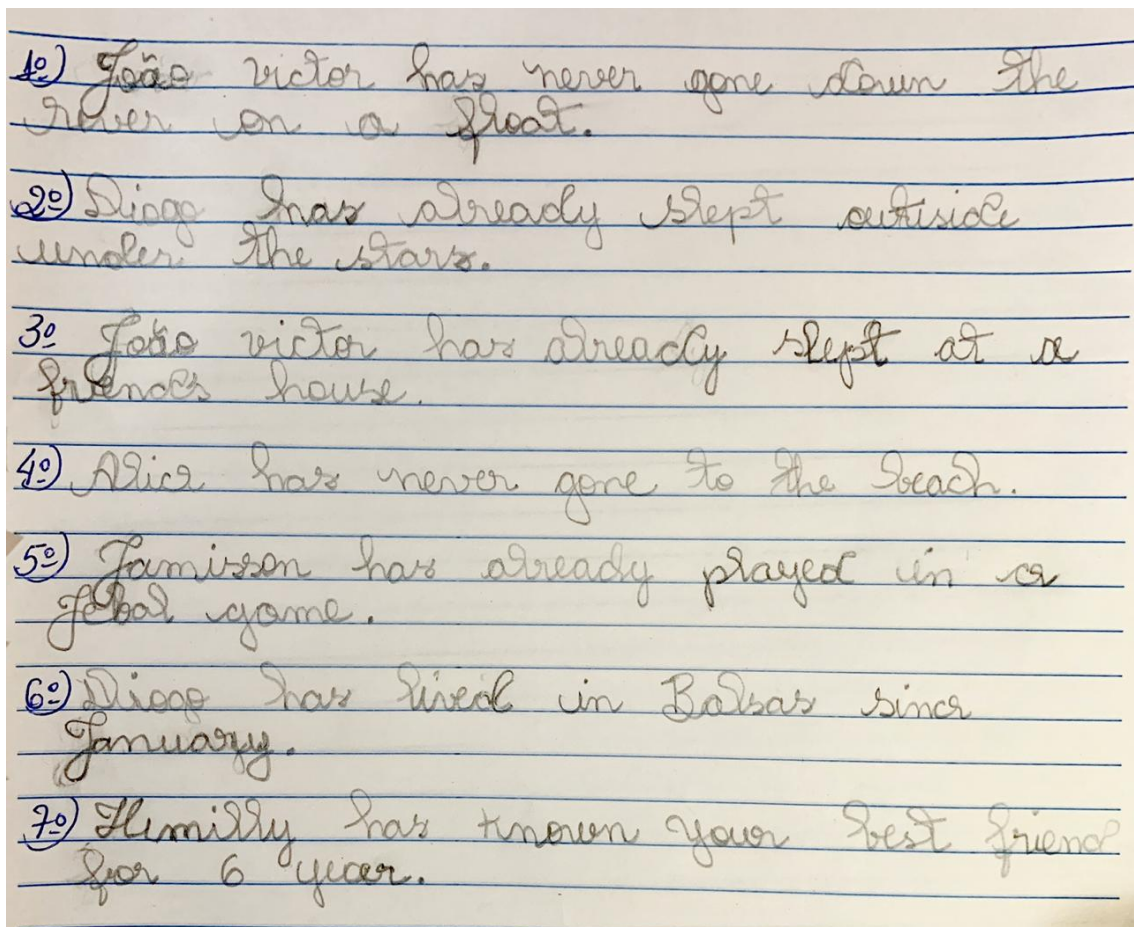 1º) João victor has never gone down the
river on a float.
2º) Diogo has already slept outside
under the stars.
3º João victor has already slept at a
friends house.
4º) Alice has never gone to the beach.
5º) Jamisson has already played in a
Jebal game.
6º) Diogo has lived in Balsas since
January.
7º) Himilly has known your best friend
for 6 year.